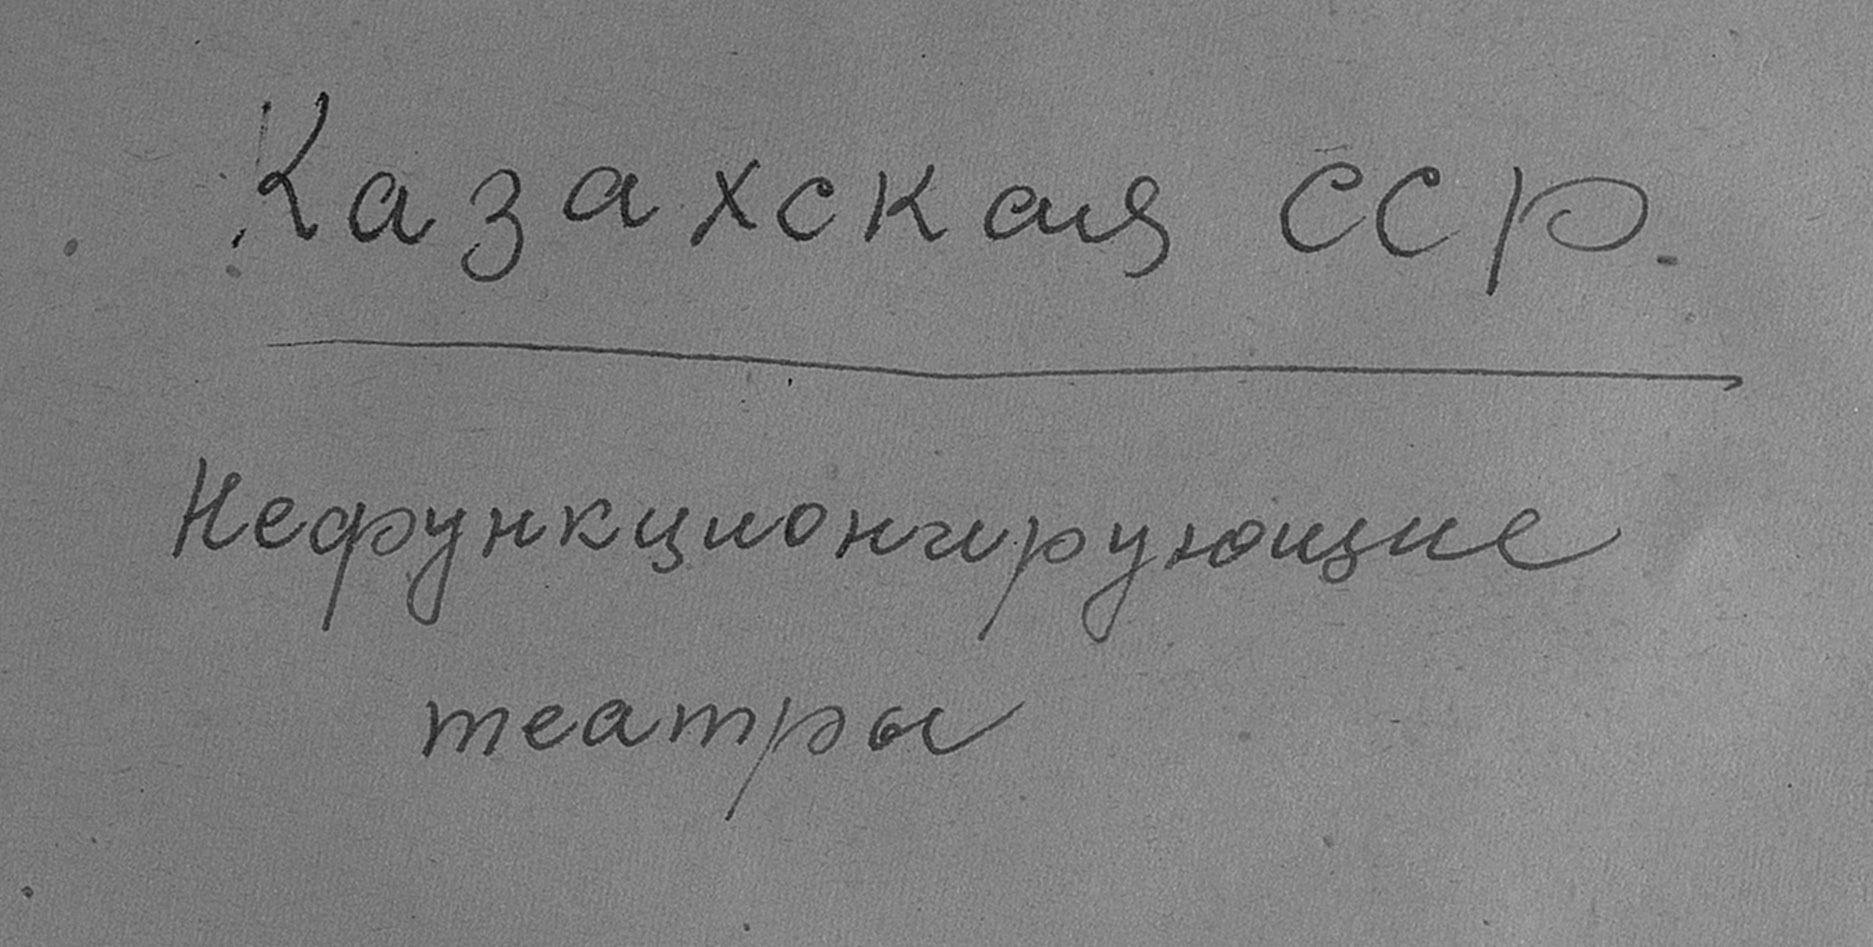 Казахская ССР.
Нефункционирующие
театры